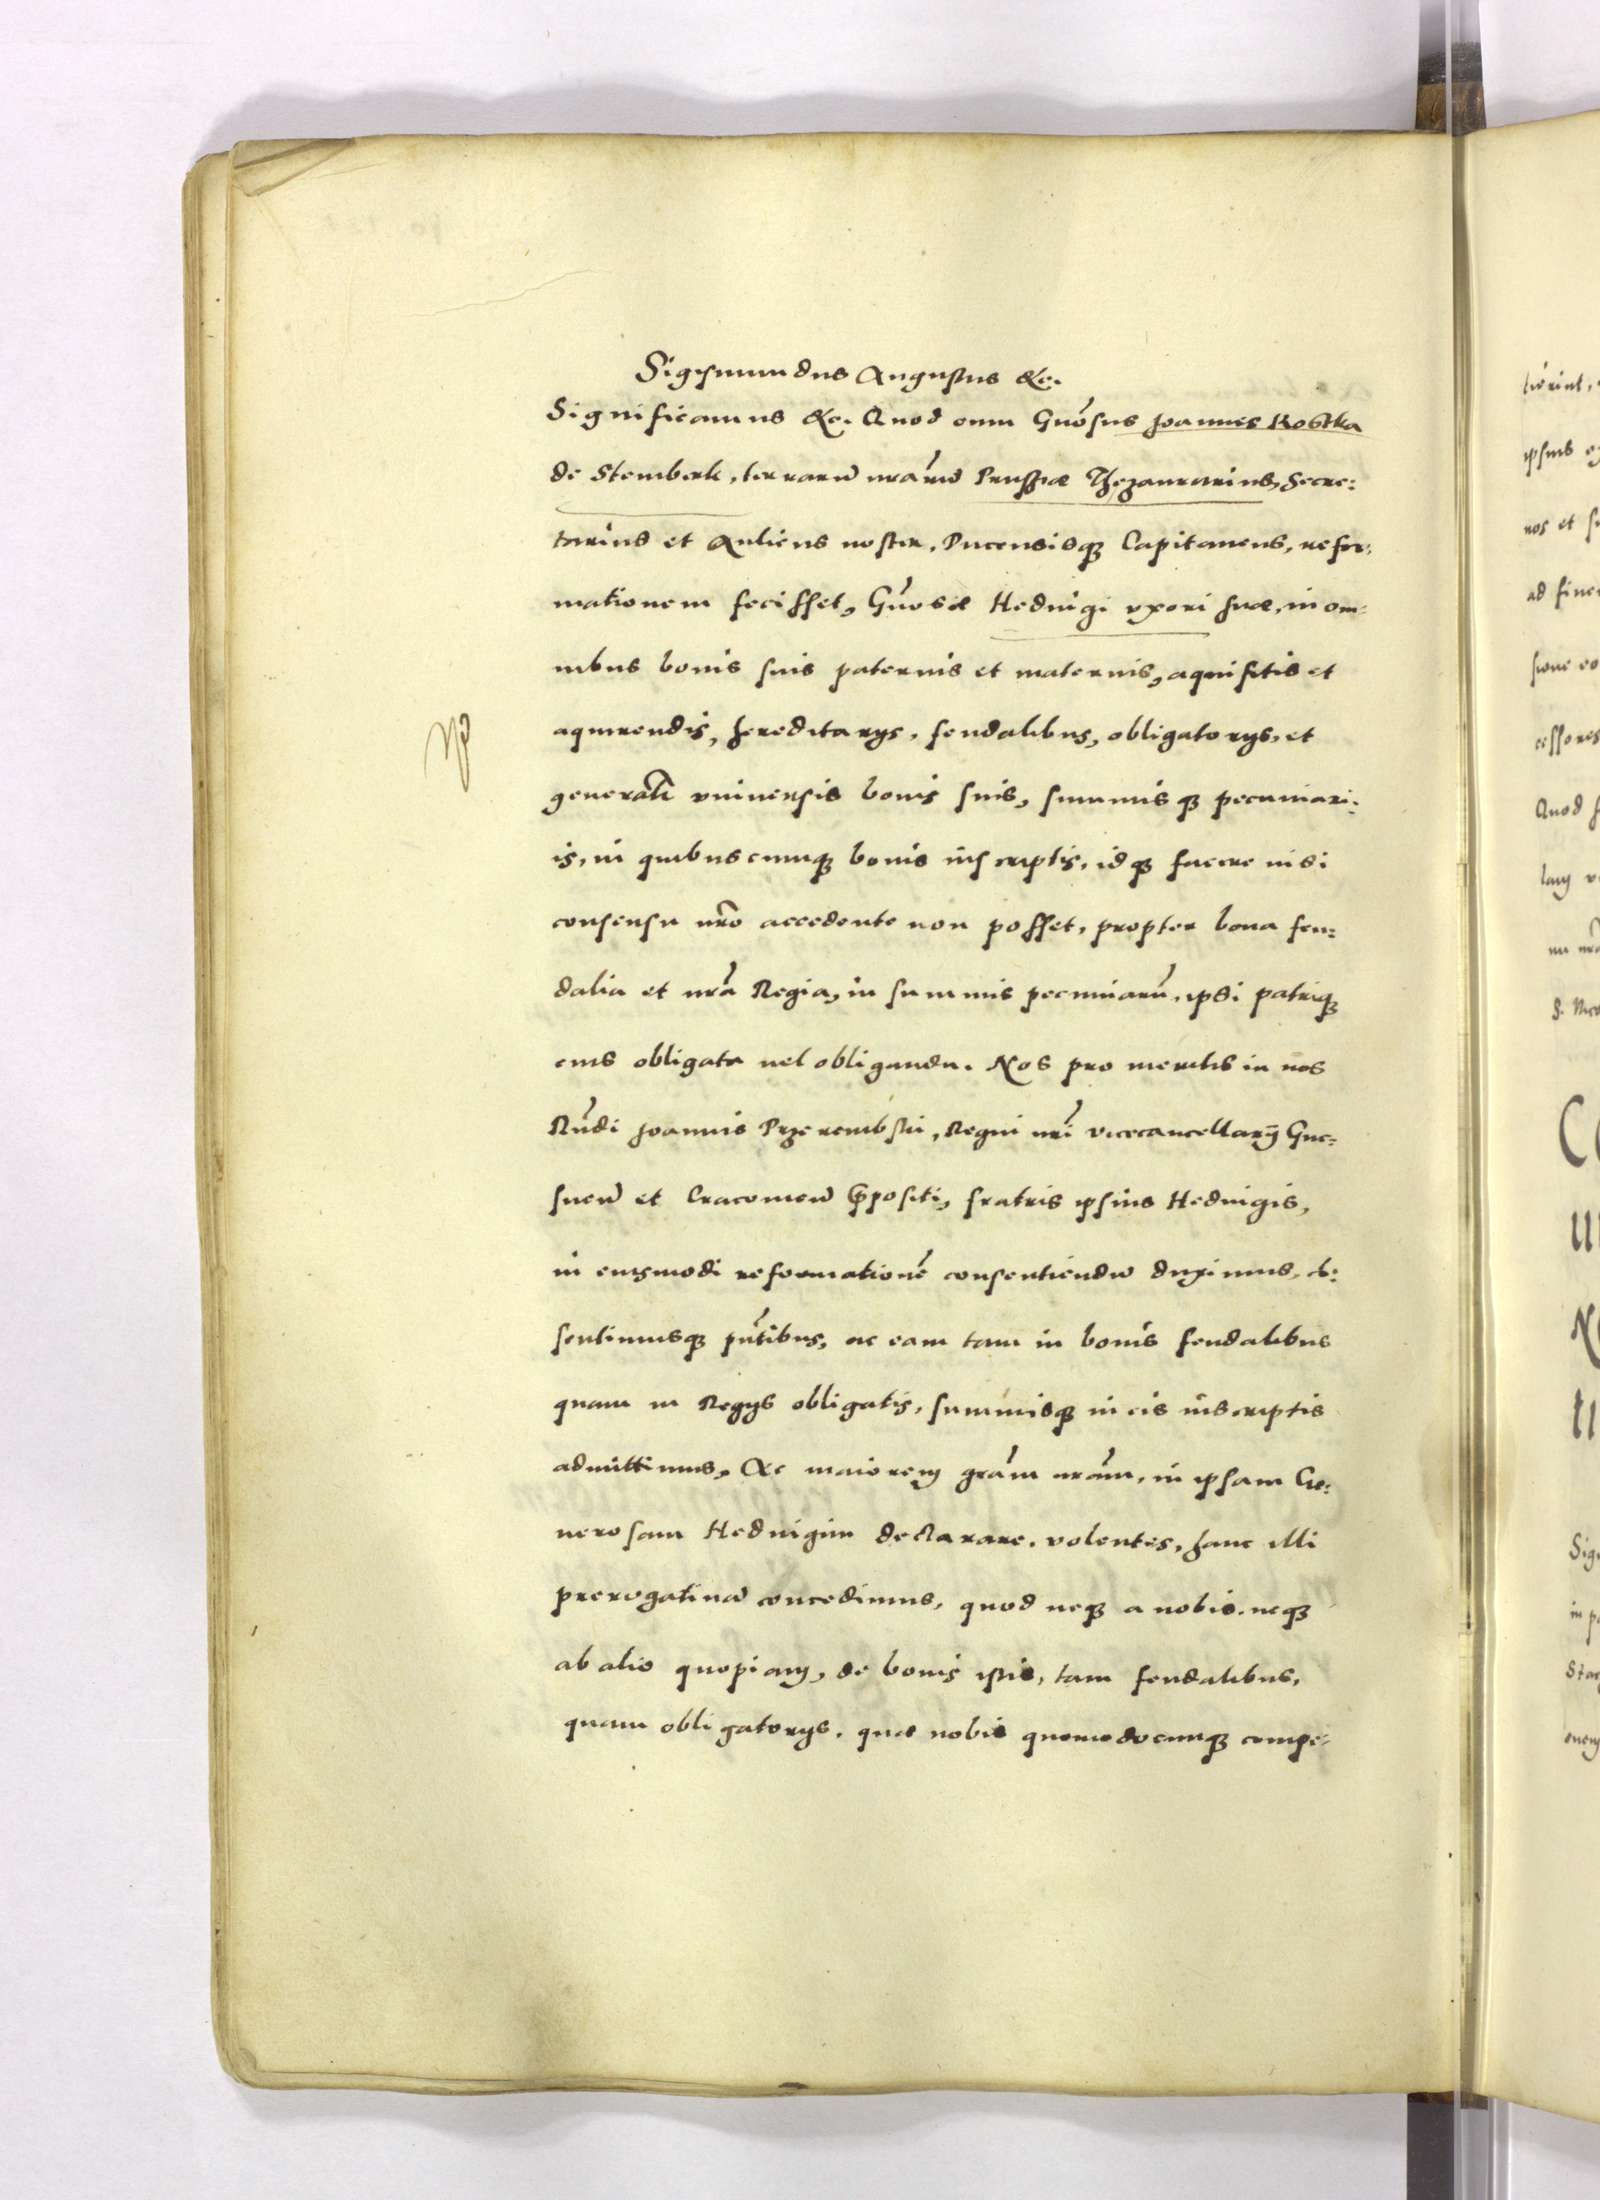 Sigismundus Augustus &c.
Significamus &c. Quod cum Gnōsus Joannes Kostka
de Stemberk, terrarū nrārū Prussiæ Thezaurarius, Secre:
tarius et Aulicus noster, Pucensisq3 Capitaneus, refor:
mationem fecisset, Gnōsæ Hedvigi uxori suæ, in om=
nibus bonis suis paternis et maternis, aquisitis et
aquirendis, hereditarijs, feudalibus, obligatorijs, et
generāli universis bonis suis, summisq3 pecuniari:
is, in quibuscumq3 bonis inscriptis, idq3 facere nisi
consensu nrō accedente non posset, propter bona feu:
dalia et nrā Regia, in summis pecuniarū, ipsi patriq3
eius obligata vel obliganda. Nos pro meritis in nos
Rn̄di Joannis Przerembski, Regni nrī vicecancellarij Gne:
snen̄ et Cracovien̄ Ppositi, fratris ipsius Hedvigis,
in eiusmodi reformationē consentiendū duximus, cō:
sentimusq3 pn̄tibus, ac eam tam in bonis feudalibus
quam in Regijs obligatis, summisq3 in eis inscriptis
admittimus. Ac maiorem grām nrām, in ipsam Ge:
nerosam Hedvigim declarare volentes, hanc illi
prerogativā concedimus, quod neq3 a nobis, neq3
ab alio quopiam, de bonis istis, tam feudalibus,
quam obligatorijs, quæ nobis quomodocumq3 compe:
tierint,
ipsius
nos et
ad
Quod